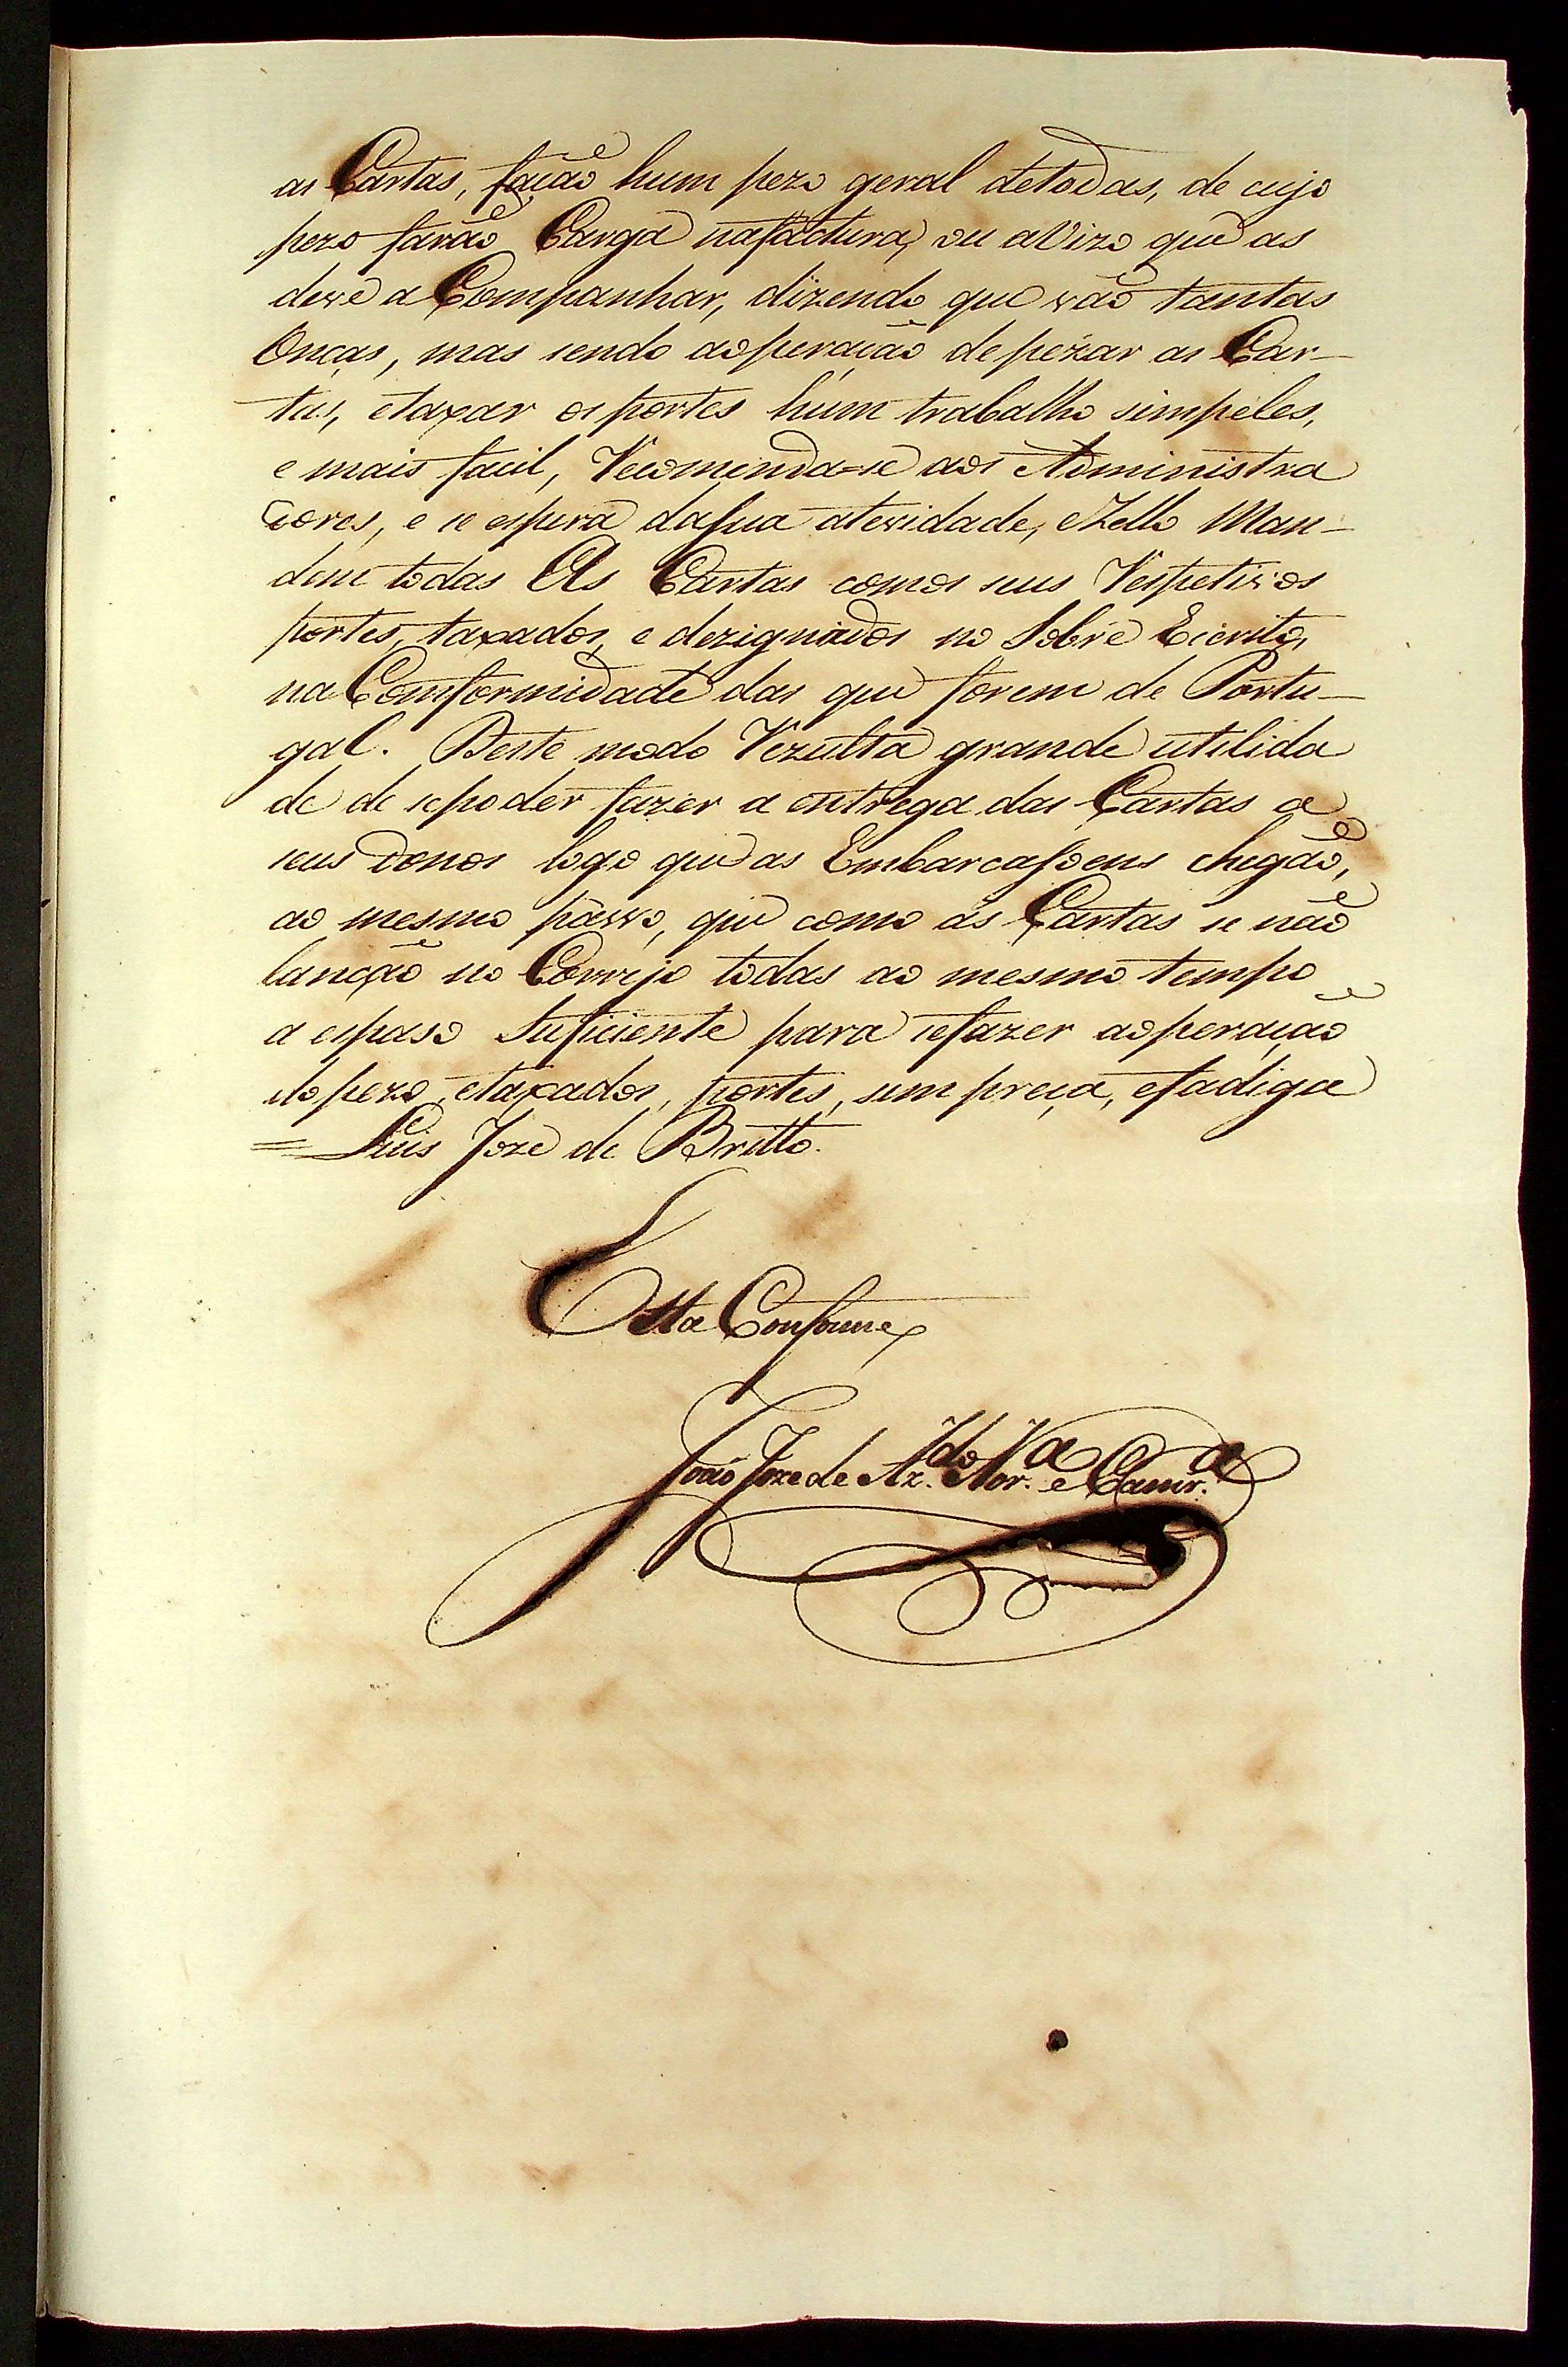 as Cartas, fação hum pezo geral detodas, de cujo
pezo farão Carga nafactura, ou aVizo que as
deve a Companhar, dizendo que vão tantas
Onças, mas sendo aoperação depezar as Car-
tas, etaxar os portes hum trabalho simpeles,
e mais facil, Recomenda=se aos Administra
dores, e se espera dasua atevidade, eZello Man-
dem todas As Cartas comos seus Respetivos
portes, taxados, e dezignados no Sobre Escrito,
na Comformidade das que forem de Portu-
gal. Deste modo Rezulta grande utilida
de de sepoder fazer a entrega das Cartas a
seus Donos logo que as Embarcasoens chegão,
ao mesmo passo, que como as Cartas se não
lanção no Correjo todas ao mesmo tempo
a espaso Suficiente para sefazer aoperação
do pezo, etaxados, portes, sem preça, efadiga
= Luis Joze de Britto.
Esta Conforme
João Joze de Az.do Nor.a e Camr.a